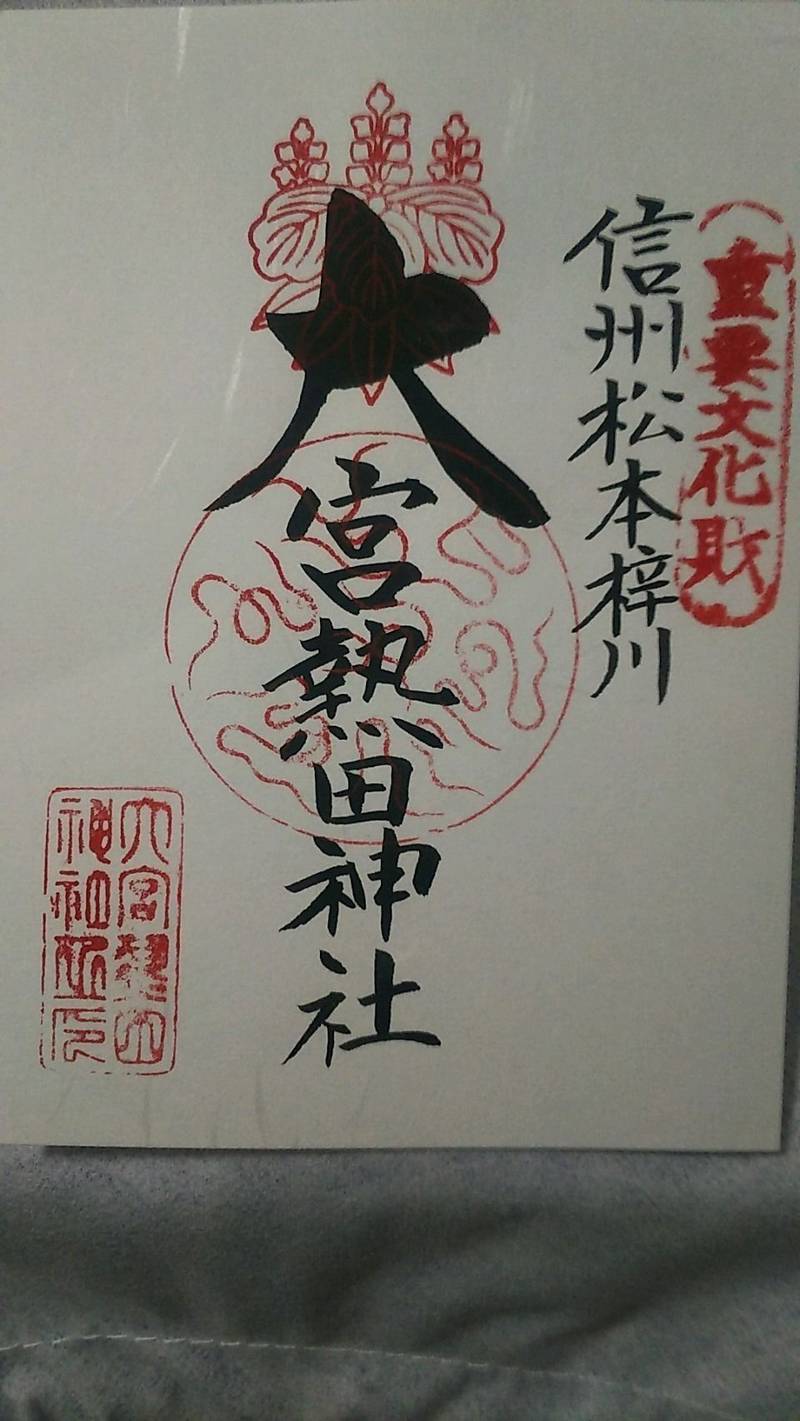 (重要文化財)
信州松本梓川
大宮熱田神社
大宮熱田
神社所印